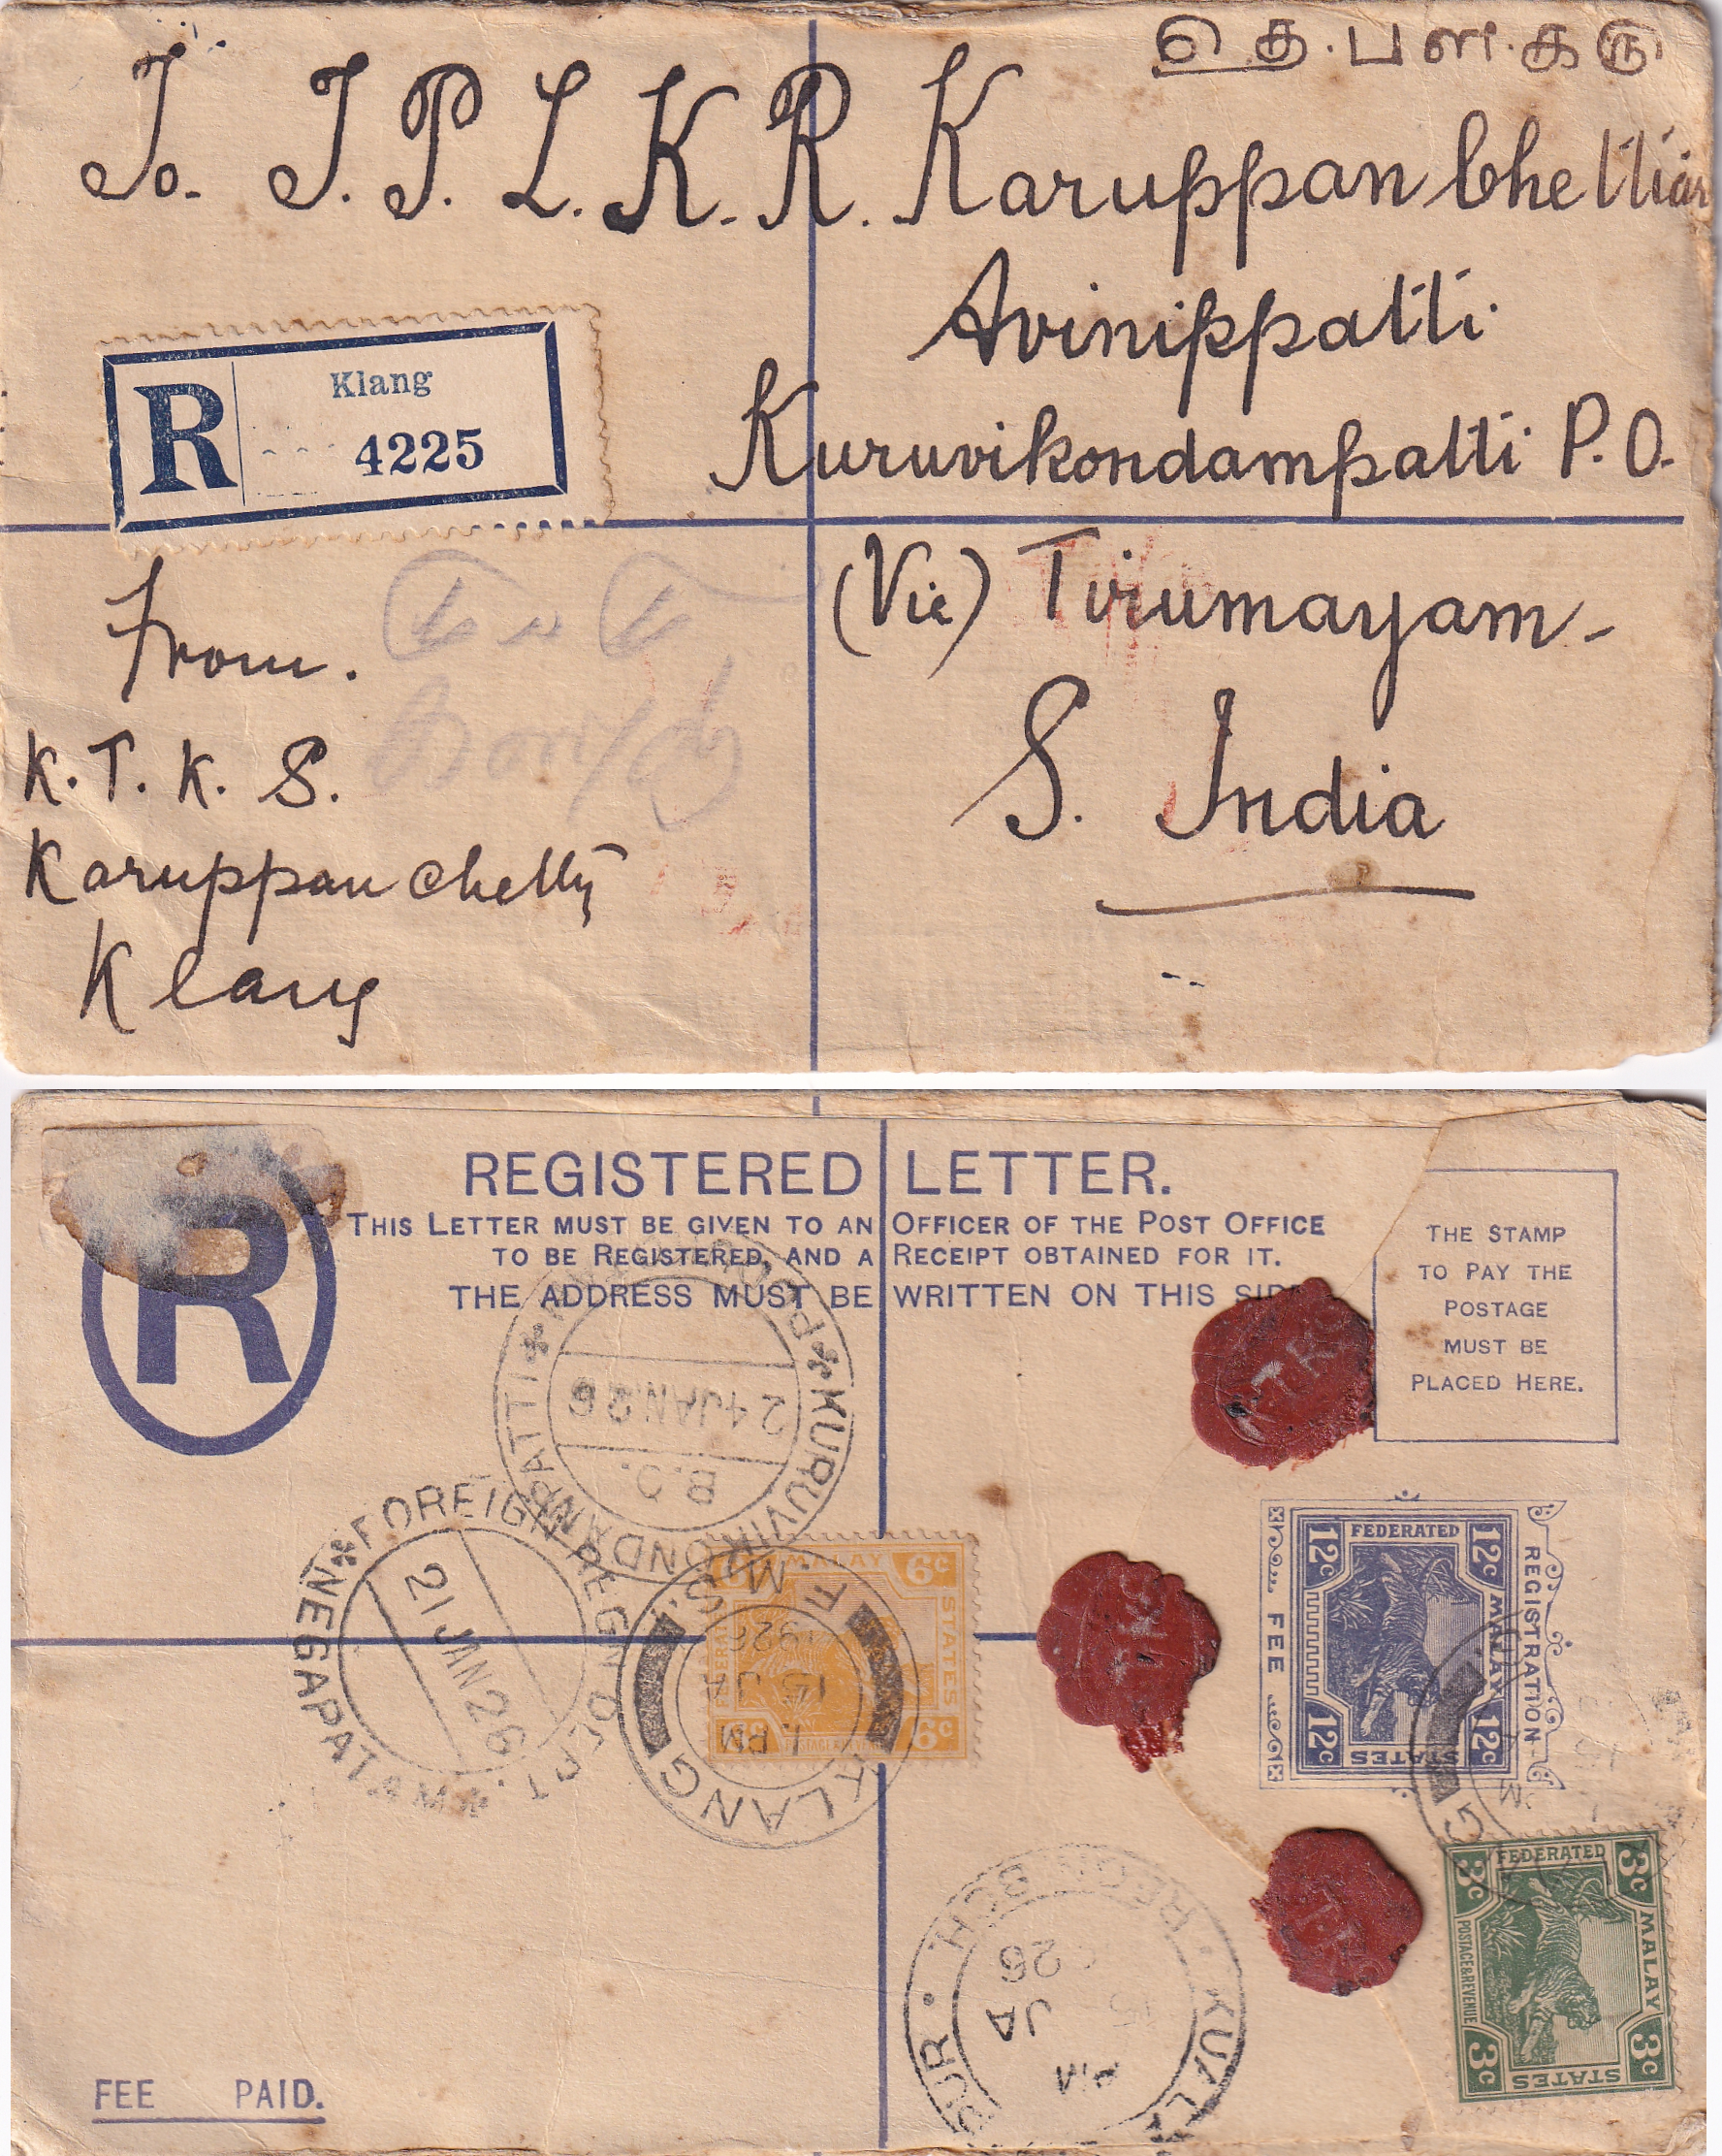 தெ.பன.கரு
To. T. P. L. K. R. Karuppan Chettiar
Avinippatti
Kuruvikondampatti P.O.
(Via) Tirumayam-
S. India
R Klang
4225
From.
K. T. K. S.
Karuppan Chetty
Klang
REGISTERED LETTER.
THIS LETTER MUST BE GIVEN TO AN OFFICER OF THE POST OFFICE
TO BE REGISTERED, AND A RECEIPT OBTAINED FOR IT.
THE ADDRESS MUST BE WRITTEN ON THIS SIDE
R
THE STAMP
TO PAY THE
POSTAGE
MUST BE
PLACED HERE.
KURUVIKONDAMPATTI
24 JAN 26
B.O.
FOREIGN REGN DEPT. NEGAPATAM
21 JAN 26
6c MALAY 6c
FEDERATED
STATES
POSTAGE & REVENUE
6c 6c
KLANG
1. PM
15 JA
1926
F.M.S.
REGISTRATION
FEE
12c FEDERATED 12c
MALAY
12c STATES 12c
3c FEDERATED 3c
MALAY
POSTAGE & REVENUE
3c STATES 3c
REGN BCH
KUAL
PUR
PM
JA
15
26
FEE PAID.